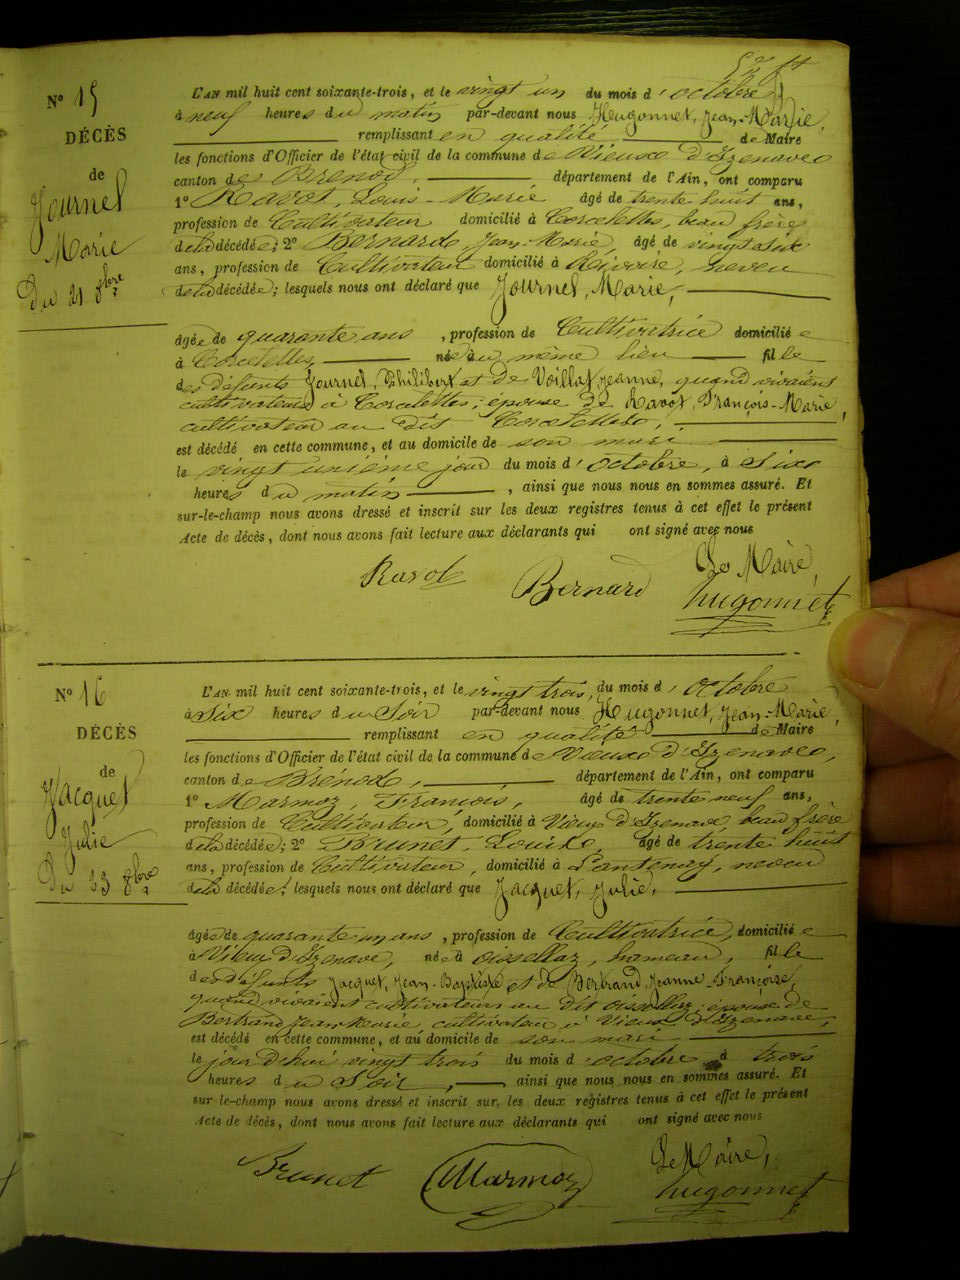 N° 15
DÉCÈS
de
Journet
Marie
Du 21 8bre
L'AN mil huit cent soixante-trois, et le vingt un du mois d'octobre
à neuf heures du matin par-devant nous Hugonnet, Jean-Marie,
remplissant en qualité de Maire
les fonctions d'Officier de l'état civil de la commune de Vieux d'Izenave
canton de Brenod, département de l'Ain, ont comparu
1° Ravot, Louis-Marie âgé de trente huit ans,
profession de Cultivateur domicilié à Corcelles, beau frère
de la décédée; 2° Bernard, Jean-Marie, âgé de vingt six
ans, profession de Cultivateur domicilié à Rivoire, neveu
de la décédée; lesquels nous ont déclaré que Journet, Marie,
âgée de quarante ans, profession de Cultivatrice domiciliée
à Corcelles, née au même lieu fille
des défunts Journet, Philibert et de Voillat, Jeanne, quand vivaient
cultivateurs à Corcelles; épouse de Ravot, François-Marie,
cultivateur au dit Corcelles,
est décédé en cette commune, et au domicile de son mari
le vingt unième jour du mois d'octobre, à Six
heures du matin, ainsi que nous nous en sommes assuré. Et
sur-le-champ nous avons dressé et inscrit sur les deux registres tenus à cet effet le présent
Acte de décès, dont nous avons fait lecture aux déclarants qui ont signé avec nous
Le Maire,
Ravot Bernard hugonnet
N° 16
DÉCÈS
de
Jacquet
Julie
Du 23 8bre
L'AN mil huit cent soixante-trois, et le vingt trois, du mois d'octobre
à Six heures du Soir par-devant nous Hugonnet, Jean-Marie,
remplissant en qualité de Maire
les fonctions d'Officier de l'état civil de la commune de Vieux d'Izenave,
canton de Brénod, département de l'Ain, ont comparu
1° Marmoz, François, âgé de trente neuf ans,
profession de Cultivateur, domicilié à Vieux d'Izenave beau frère
de la décédée; 2° Brunet, âgé de trente huit
ans, profession de Cultivateur, domicilié à Lantenay, neveu
de la décédée; lesquels nous ont déclaré que Jacquet, Julie,
âgée de quarante un ans, profession de Cultivatrice, domiciliée
à Vieux d'Izenave, née à oisselaz, hameau, fille
des défunts Jacquet, Jean-Baptiste et de Bertrand, Jeanne-Françoise,
quand vivaient cultivateurs au dit oisselaz; épouse de
Bertrand Jean Marie, cultivateur à Vieux d'Izenave,
est décédé en cette commune, et au domicile de son mari
le jour d'hui vingt trois du mois d'octobre à trois
heures du Soir, ainsi que nous nous en sommes assuré. Et
sur-le-champ nous avons dressé et inscrit sur les deux registres tenus à cet effet le présent
Acte de décès, dont nous avons fait lecture aux déclarants qui ont signé avec nous
Le Maire,
Brunet Marmoz hugonnet